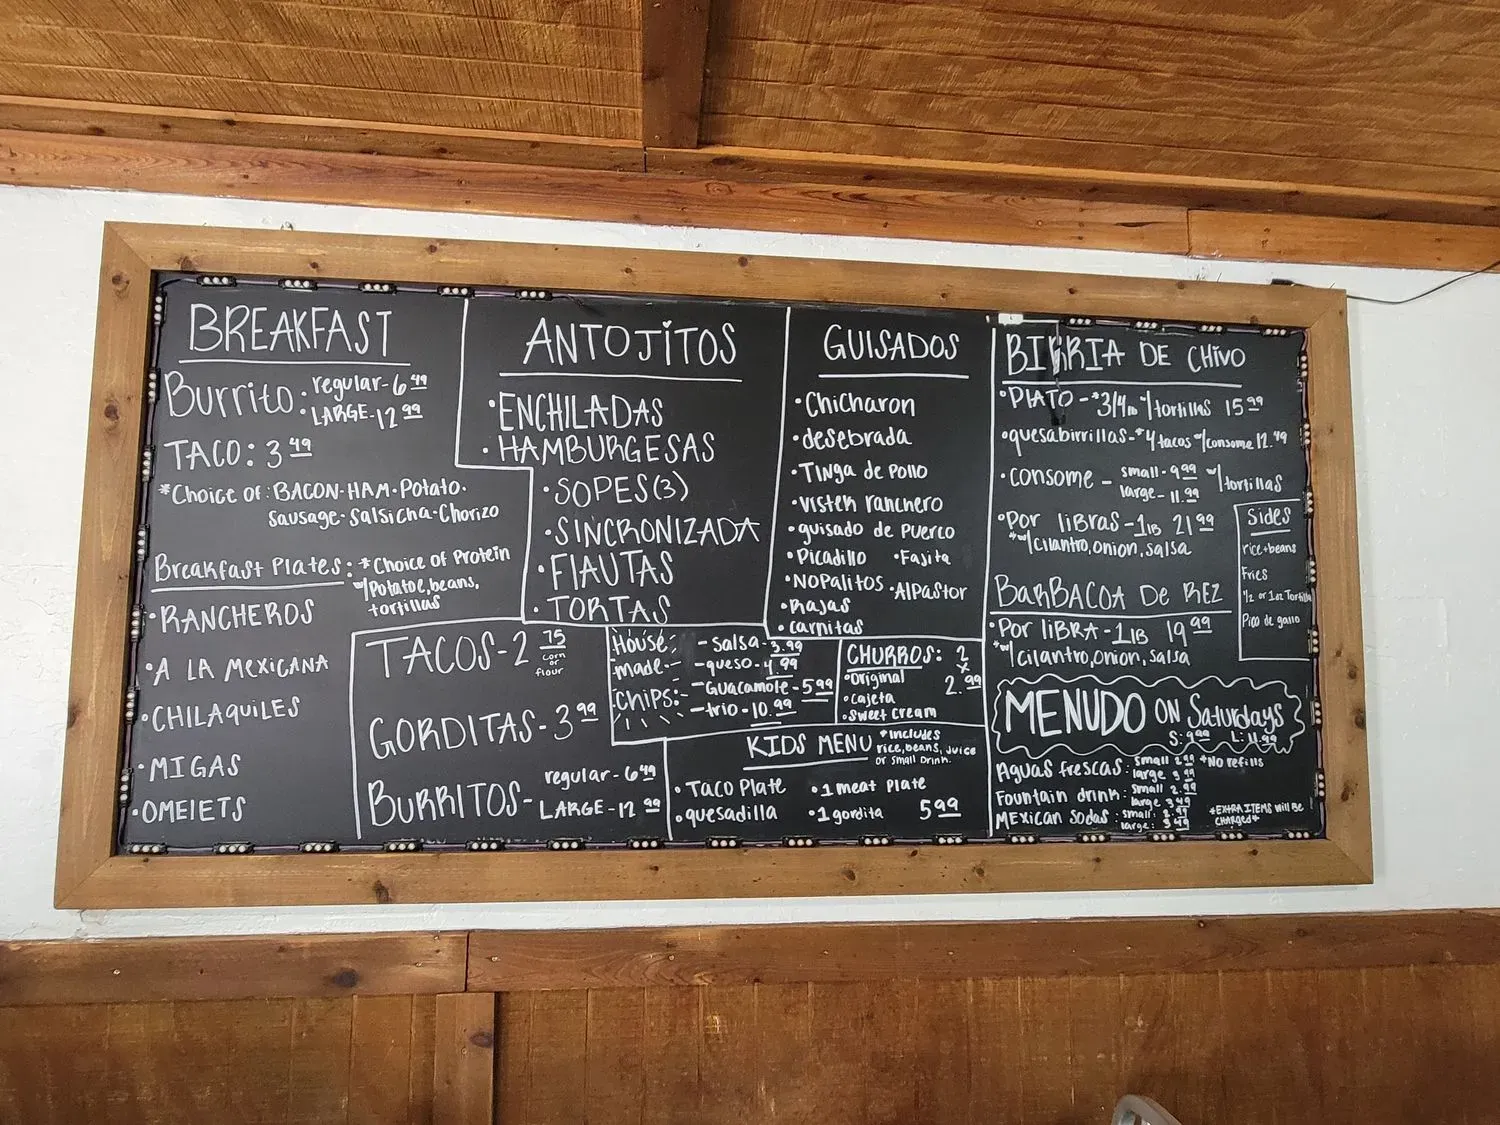 BREAKFAST
Burrito: regular - 6 49
LARGE - 12 99
TACO: 3 49
*Choice of: BACON - HAM - Potato -
Sausage - Salsicha - Chorizo
Breakfast Plates: *Choice of Protein
w/Potatoe, beans,
tortillas
• RANCHEROS
• A LA MEXICANA
• CHILAQUILES
• MIGAS
• OMELETS
ANTOJITOS
• ENCHILADAS
• HAMBURGESAS
• SOPES (3)
• SINCRONIZADA
• FLAUTAS
• TORTAS
TACOS - 2 75
corn
or
flour
GORDITAS - 3 99
BURRITOS - regular - 6 49
LARGE - 12 99
House made Chips:
- Salsa - 3.99
- queso - 4.99
- Guacamole - 5 99
- trio - 10.99
GUISADOS
• Chicharon
• desebrada
• Tinga de Pollo
• Vistek ranchero
• guisado de Puerco
• Picadillo • Fajita
• NOPalitos • AlPastor
• Rajas
• carnitas
CHURROS: 2 x 2.99
• Original
• cajeta
• Sweet Cream
KIDS MENU *includes
rice, beans, juice
or small Drink.
• Taco Plate • 1 meat Plate
• quesadilla • 1 gordita 5 99
BIRRIA DE CHIVO
• PLATO - *3/4 lb w/tortillas 15 99
• quesabirrillas - *4 tacos w/consome 12.49
• consome - small - 9 99 w/tortillas
large - 11.99
• Por libras - 1 LB 21 99
*w/cilantro, onion, salsa
BARBACOA De REZ
• Por libra - 1 LB 19 99
*w/cilantro, onion, salsa
Sides
rice + beans
Fries
1/2 or 1 oz Tortilla
Pico de gallo
MENUDO ON Saturdays
S: 9 99 L: 11.99
Aguas frescas: small 2 99 *No refills
large 3 99
Fountain drink: Small 2.99
large 3 49
MEXICAN Sodas: small: 2.99
large: 3 49
*EXTRA ITEMS will be
CHARGED*